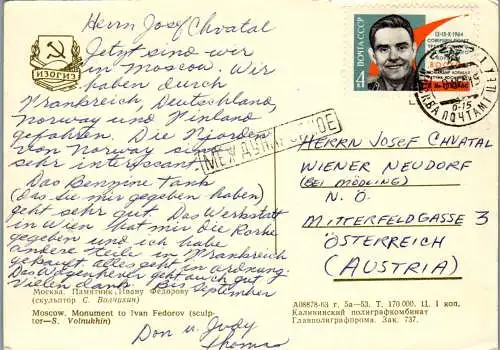 Herrn Josef Chvatal
Jetzt sind wir
in Moscow. Wir
haben durch
Frankreich, Deutschland,
Norway und Finland
gefahren. Die Fjorden
von Norway sind
sehr interessant.
Das Benzine Tank
(Das du mir gegeben haben)
geht sehr gut. Das Werkstatt
in Wien hat mir die Rorhe
gegeben und ich habe
andere teile in Frankreich
gekauft. Alles geht in ordnung.
Das Wagenheber geht auch gut
Vielen dank. Bis September
Don u. Judy
Thomas
ИЗОГИЗ
МЕЖДУНАРОДНОЕ
ПОЧТА СССР
4
12-13-X-1964
МОСКВА ПОЧТАМТ
HERRN JOSEF CHVATAL
WIENER NEUDORF
(BEI MÖDLING)
N. Ö.
MITTERFELDGASSE 3
ÖSTERREICH
(AUSTRIA)
Москва. Памятник Ивану Федорову
(скульптор С. Волнухин)
Moscow. Monument to Ivan Fedorov (sculp-
tor—S. Volnukhin)
А08878-63 г. 5а—53. Т. 170 000. Ц. 1 коп.
Калининский полиграфкомбинат
Главполиграфпрома. Зак. 737.